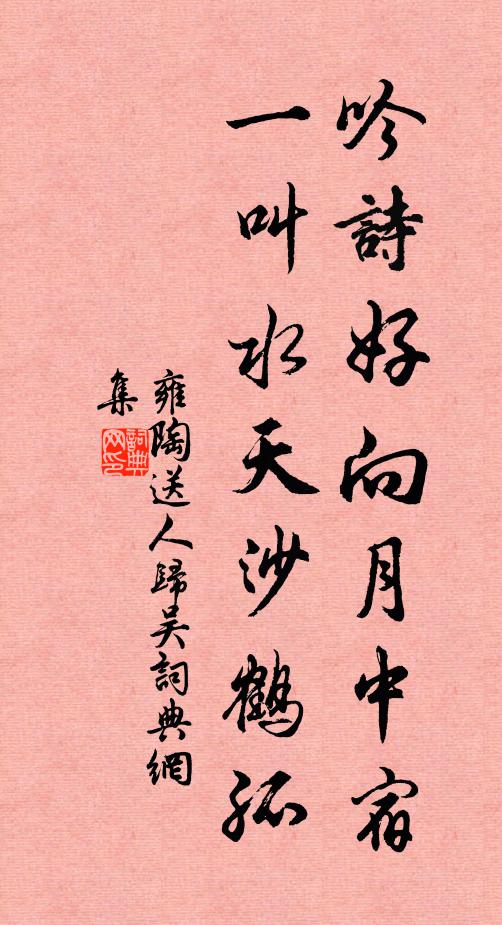 吟詩好向月中宿
一叫水天沙鶴孤
雍陶送人歸吴詞典網
集
詞典
网印